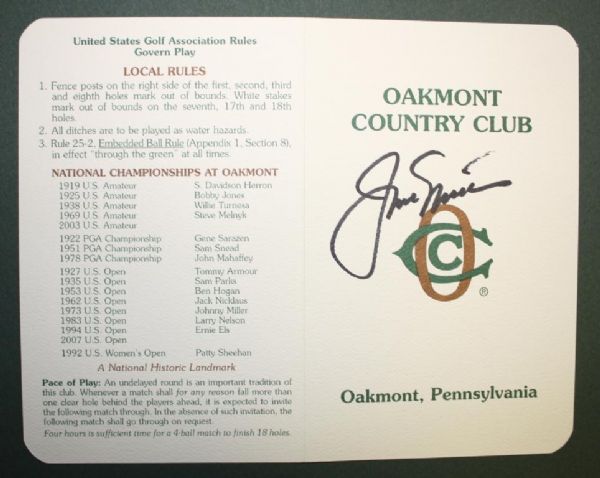 United States Golf Association Rules
Govern Play
LOCAL RULES
1. Fence posts on the right side of the first, second, third
and eighth holes mark out of bounds. White stakes
mark out of bounds on the seventh, 17th and 18th
holes.
2. All ditches are to be played as water hazards.
3. Rule 25-2, Embedded Ball Rule (Appendix 1, Section 8),
in effect "through the green" at all times.
NATIONAL CHAMPIONSHIPS AT OAKMONT
1919 U.S. Amateur S. Davidson Herron
1925 U.S. Amateur Bobby Jones
1938 U.S. Amateur Willie Turnesa
1969 U.S. Amateur Steve Melnyk
2003 U.S. Amateur
1922 PGA Championship Gene Sarazen
1951 PGA Championship Sam Snead
1978 PGA Championship John Mahaffey
1927 U.S. Open Tommy Armour
1935 U.S. Open Sam Parks
1953 U.S. Open Ben Hogan
1962 U.S. Open Jack Nicklaus
1973 U.S. Open Johnny Miller
1983 U.S. Open Larry Nelson
1994 U.S. Open Ernie Els
2007 U.S. Open
1992 U.S. Women's Open Patty Sheehan
A National Historic Landmark
Pace of Play: An undelayed round is an important tradition of
this club. Whenever a match shall for any reason fall more than
one clear hole behind the players ahead, it is expected to invite
the following match through. In the absence of such invitation, the
following match shall go through on request.
Four hours is sufficient time for a 4-ball match to finish 18 holes.
OAKMONT
COUNTRY CLUB
OCC
®
Oakmont, Pennsylvania